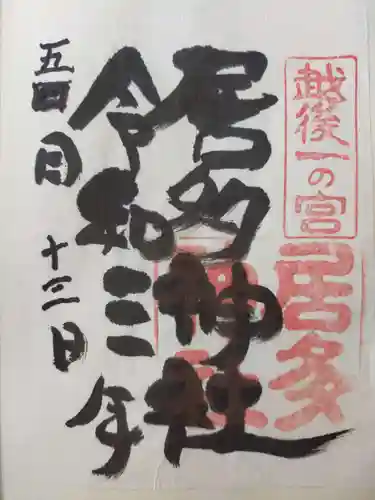 越後一の宮
居多
神社
居多神社
令和三年
五月
十三日